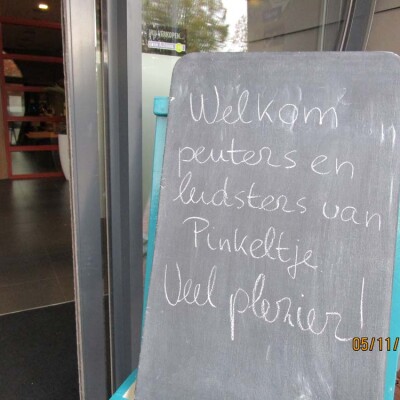 Welkom
peuters en
leidsters van
Pinkeltje
Veel plezier!
05/11/